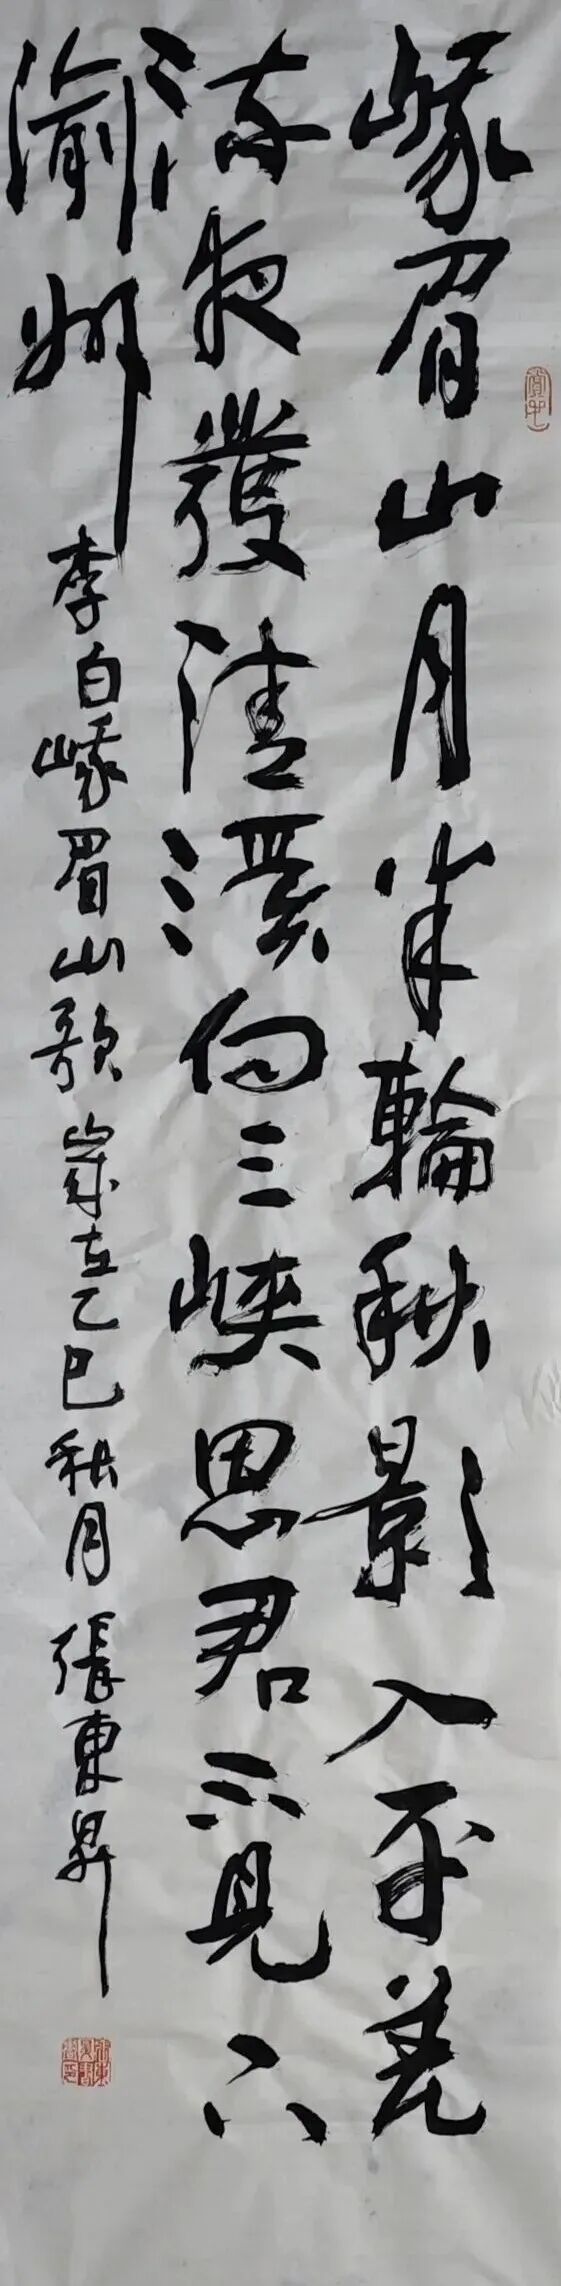 峨眉山月半輪秋影入平羌
流夜發清溪向三峽思君不見下
渝州
李白峨眉山歌歲在乙巳秋月張東昇